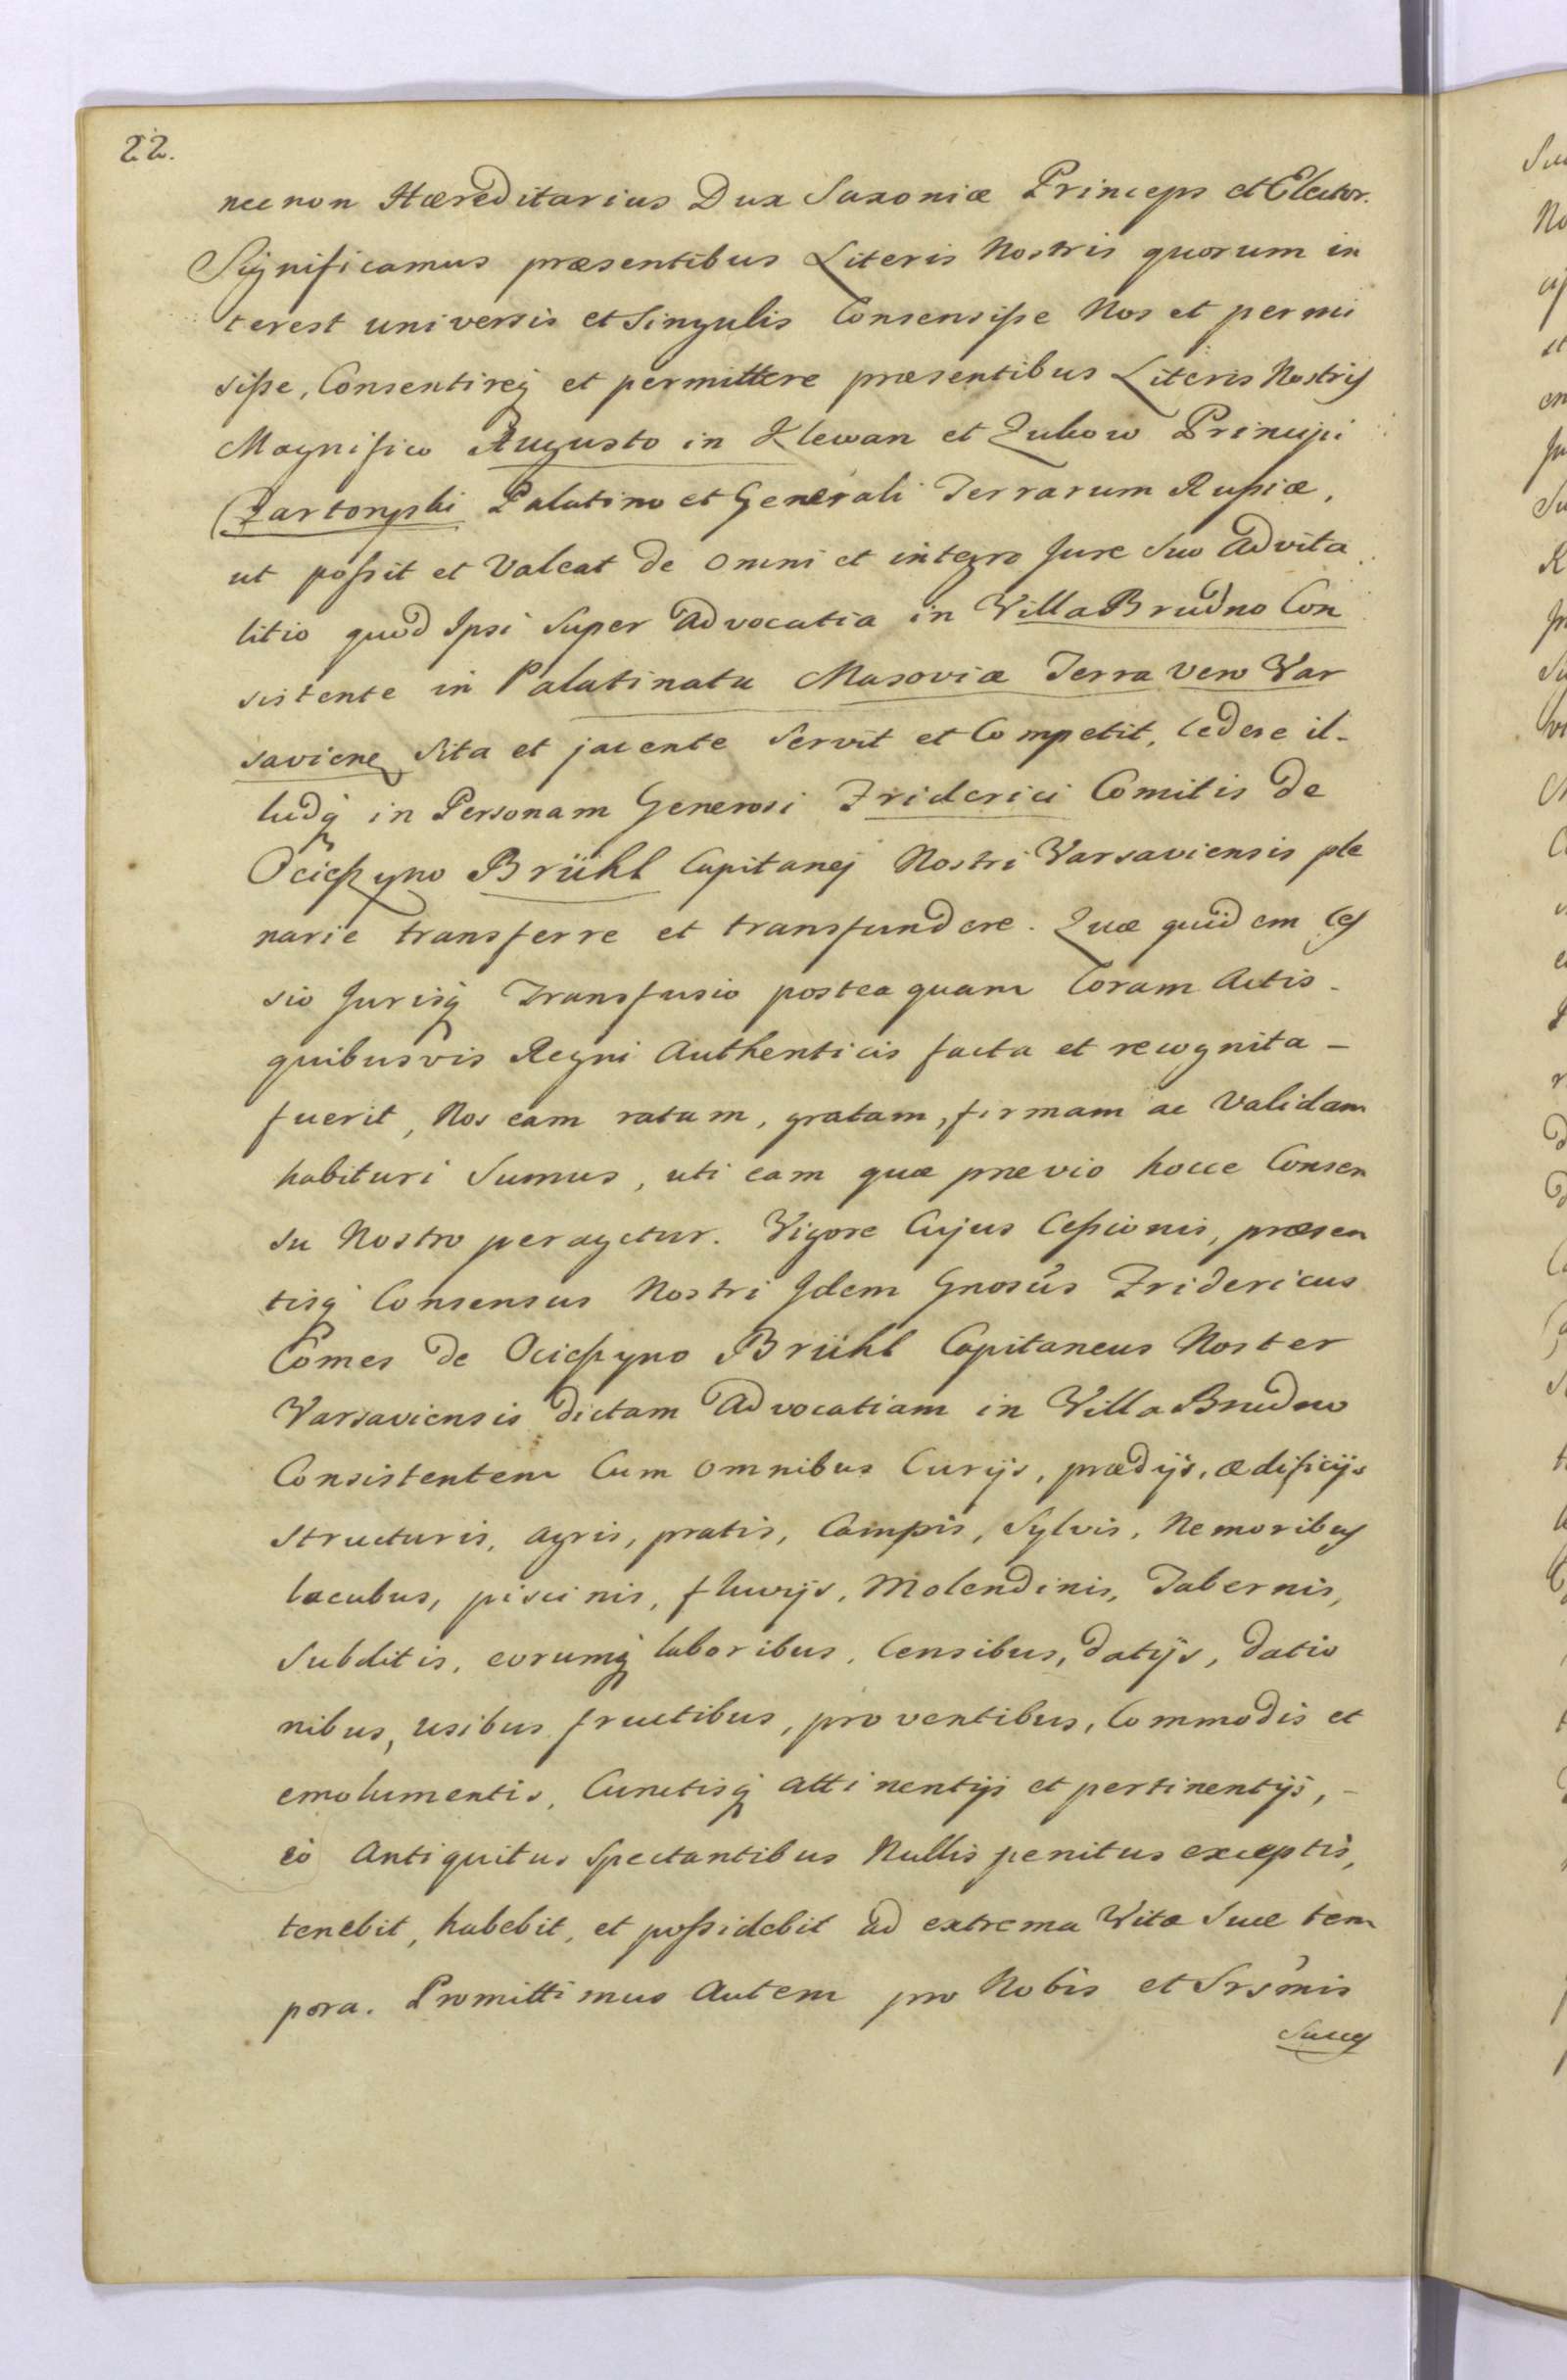 22.
necnon Hæreditarius Dux Saxoniæ Princeps et Elector.
Significamus præsentibus Literis Nostris quorum in
terest universis et Singulis Consensiſse Nos et permi
siſse, Consentireq et permittere præsentibus Literis Nostris
Magnifico Augusto in Klewan et Zukow Principi
Czartoryſki Palatino et Generali Terrarum Ruſsiæ,
ut poſsit et Valeat de omni et integro Jure Suo Advita
litio quod Ipsi Super Advocatia in Villa Brudno Con
sistente in Palatinatu Masoviæ Terra vero Var
saviens Sita et jacente Servit et Competit, Cedere il-
ludq in Personam Generosi Friderici Comitis de
Ocieſzyno Brühl Capitanej Nostri Varsaviensis ple
narie transferre et transfundere. Quæ quidem Ces
sio Jurisq Transfusio postea quam Coram Actis -
quibusvis Regni Authenticis facta et recognita -
fuerit, Nos eam ratam, gratam, firmam ac Validam
habituri Sumus, uti eam quæ prævio hocce Consen
su Nostro peragetur. Vigore Cujus Ceſsionis, præsen
tisq Consensus Nostri Idem Gnosus Fridericus
Comes de Ocieſzyno Brühl Capitaneus Noster
Varsaviensis dictam Advocatiam in Villa Brudno
Consistentem Cum omnibus Curijs, prædijs, ædificijs
structuris, agris, pratis, Campis, Sylvis, Nemoribus
lacubus, piscinis, fluvijs, Molendinis, Tabernis,
Subditis, eorumq laboribus, Censibus, datijs, datio
nibus, usibus fructibus, proventibus, Commodis et
emolumentis, Cunctisq attinentijs et pertinentijs, -
eò Antiquitus Spectantibus Nullis penitus exceptis,
tenebit, habebit, et poſsidebit ad extrema Vitæ Suæ tem
pora. Promittimus Autem pro Nobis et Srsmis
Succes